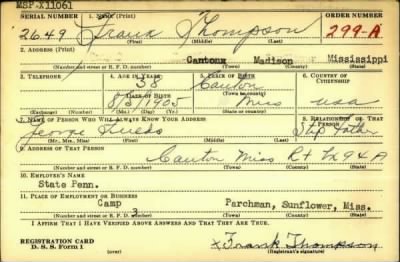 MSP-X11061
SERIAL NUMBER 1. NAME (Print) ORDER NUMBER
2649 Frank Thompson 299-A
(First) (Middle) (Last)
2. ADDRESS (Print)
Cantonx Madison Mississippi
(Number and street or R. F. D. number) (Town) (County) (State)
3. TELEPHONE 4. AGE IN YEARS 5. PLACE OF BIRTH 6. COUNTRY OF CITIZENSHIP
38 Canton
DATE OF BIRTH
8/3/1903 Miss USA
(Exchange) (Number) (Mo.) (Day) (Yr.) (State or country)
7. NAME OF PERSON WHO WILL ALWAYS KNOW YOUR ADDRESS 8. RELATIONSHIP OF THAT PERSON
George Step Father
(Mr., Mrs., Miss) (First) (Middle) (Last)
9. ADDRESS OF THAT PERSON
Canton Miss Rt 94 A
(Number and street or R. F. D. number) (Town) (County) (State)
10. EMPLOYER'S NAME
State Penn.
11. PLACE OF EMPLOYMENT OR BUSINESS
Camp 3 Parchman, Sunflower, Miss.
(Number and street or R. F. D. number) (Town) (County) (State)
I AFFIRM THAT I HAVE VERIFIED ABOVE ANSWERS AND THAT THEY ARE TRUE.
REGISTRATION CARD
D. S. S. Form 1 x Frank Thompson
(Registrant's signature)